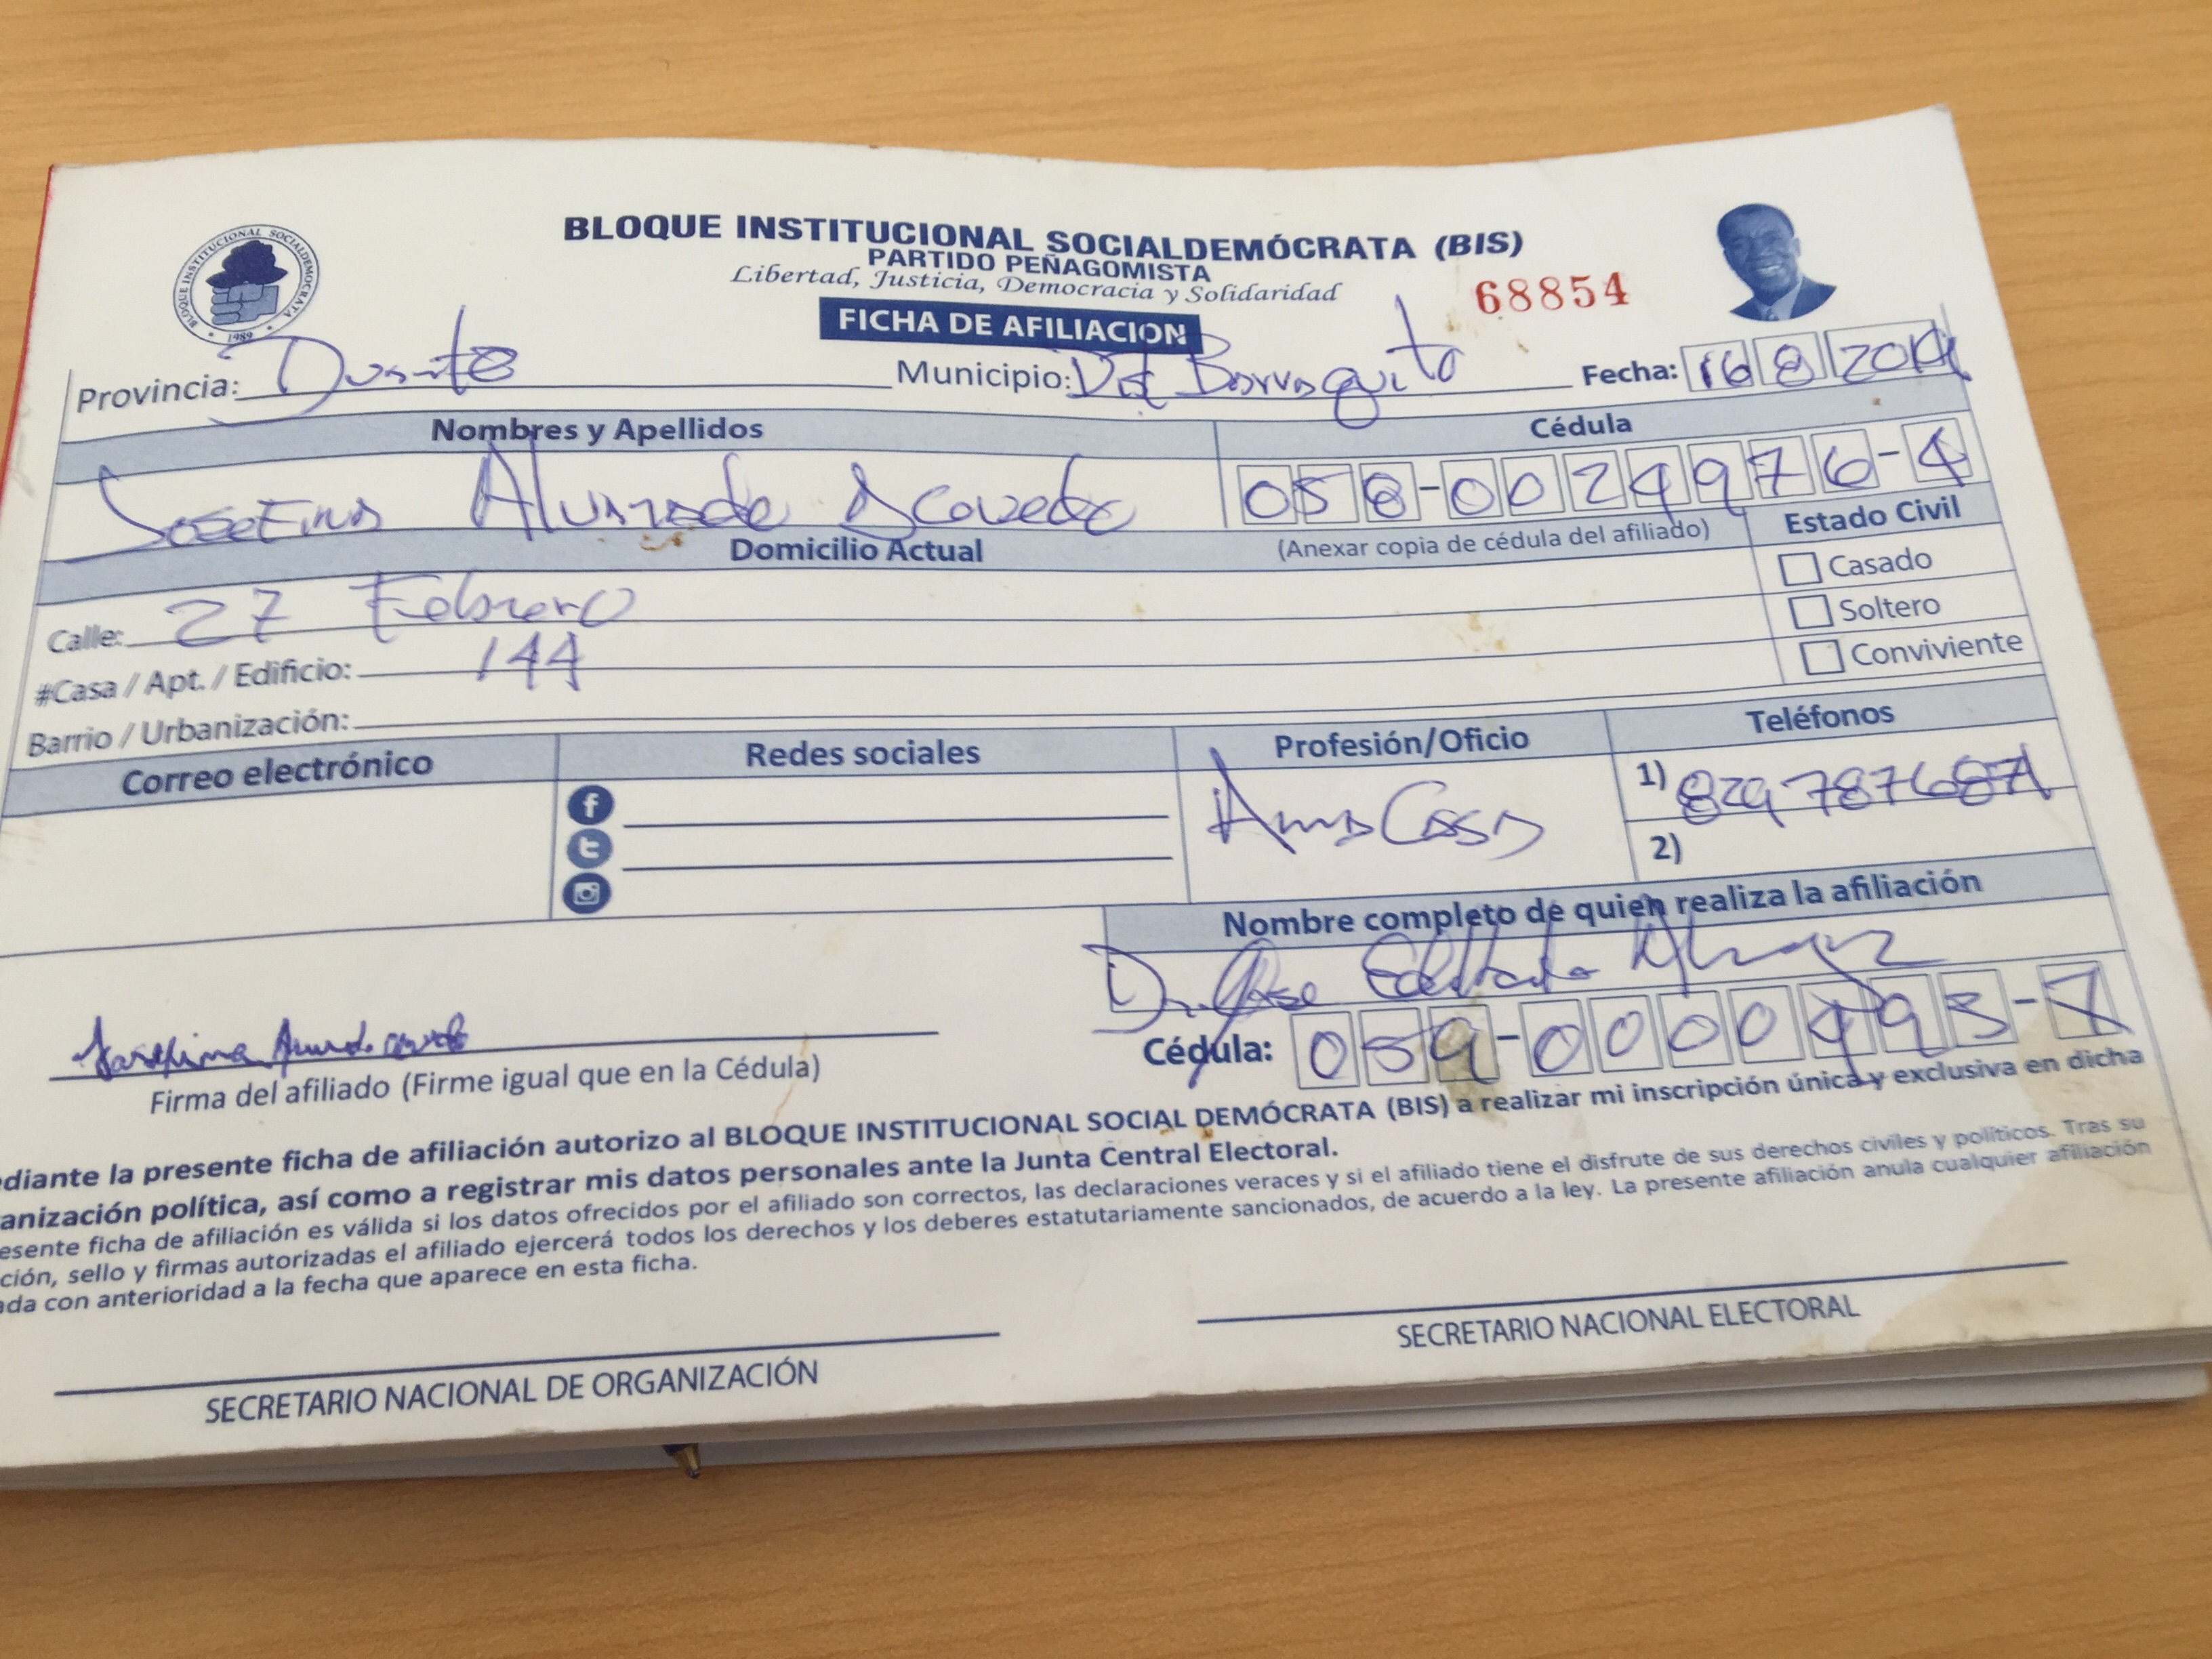 BLOQUE INSTITUCIONAL SOCIALDEMÓCRATA • 1989 •
BLOQUE INSTITUCIONAL SOCIALDEMÓCRATA (BIS)
PARTIDO PEÑAGOMISTA
Libertad, Justicia, Democracia y Solidaridad
68854
FICHA DE AFILIACION
Provincia: Duarte Municipio: Barraquito Fecha: 16 8 2019
Nombres y Apellidos Cédula
Josefina Alvarado 058-0024976-4
Domicilio Actual (Anexar copia de cédula del afiliado) Estado Civil
Casado
Calle: 27 Febrero Soltero
#Casa / Apt. / Edificio: 144 Conviviente
Barrio / Urbanización:
Correo electrónico Redes sociales Profesión/Oficio Teléfonos
f
t
Ama Casa 1) 829 7876871
2)
Nombre completo de quien realiza la afiliación
Dr. Jose
Cédula: 059-0000493-7
Josefina
Firma del afiliado (Firme igual que en la Cédula)
diante la presente ficha de afiliación autorizo al BLOQUE INSTITUCIONAL SOCIAL DEMÓCRATA (BIS) a realizar mi inscripción única y exclusiva en dicha
anización política, así como a registrar mis datos personales ante la Junta Central Electoral.
esente ficha de afiliación es válida si los datos ofrecidos por el afiliado son correctos, las declaraciones veraces y si el afiliado tiene el disfrute de sus derechos civiles y políticos. Tras su
ción, sello y firmas autorizadas el afiliado ejercerá todos los derechos y los deberes estatutariamente sancionados, de acuerdo a la ley. La presente afiliación anula cualquier afiliación
ada con anterioridad a la fecha que aparece en esta ficha.
SECRETARIO NACIONAL DE ORGANIZACIÓN SECRETARIO NACIONAL ELECTORAL